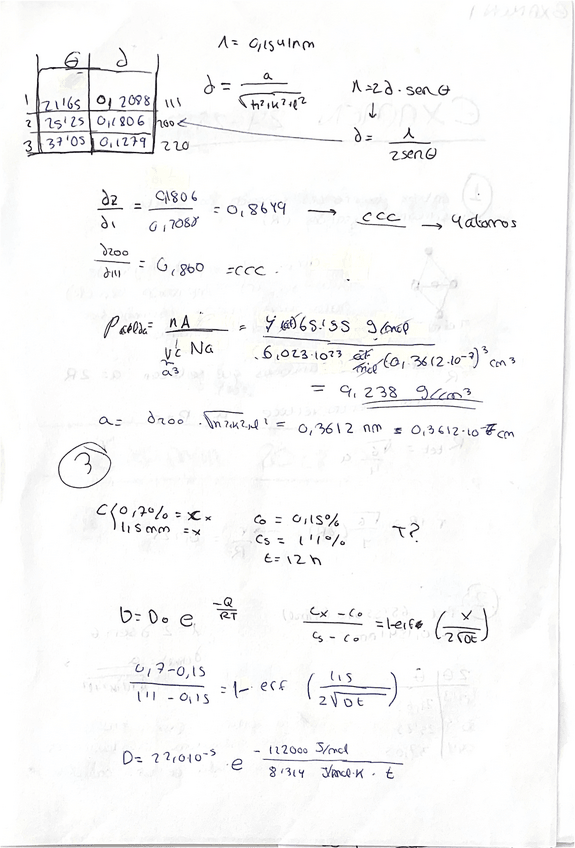 λ = 0,1541nm
θ d
1 21'65 0,2088 111
2 25'25 0,1806 200
3 37'05 0,1279 220
d = a / √h²+k²+l²
λ = 2d · senθ
↓
d = λ / 2senθ
d2 / d1 = 0,1806 / 0,2088 = 0,8649 → ccc → 4 atomos
d200 / d111 = 0,860 = ccc.
nA / Vc Na
a³
6,023·10²³ at/mol (0,3612·10⁻⁷)³ cm³
= 9,238 g/cm³
a = d200 · √h²+k²+l² = 0,3612 nm = 0,3612·10⁻⁷ cm
3
C { 0,7% = Cx
1,15mm = x
C0 = 0,15%
Cs = 1'1%
t = 12h
T?
D = D0 e -Q / RT
Cx - C0 / Cs - C0 = 1-erf (x / 2√Dt)
0,7-0,15 / 1'1-0,15 = 1- erf (1,15 / 2√Dt)
D = 2,2·10⁻⁵ · e - 122000 J/mol / 8'314 J/mol·K · t